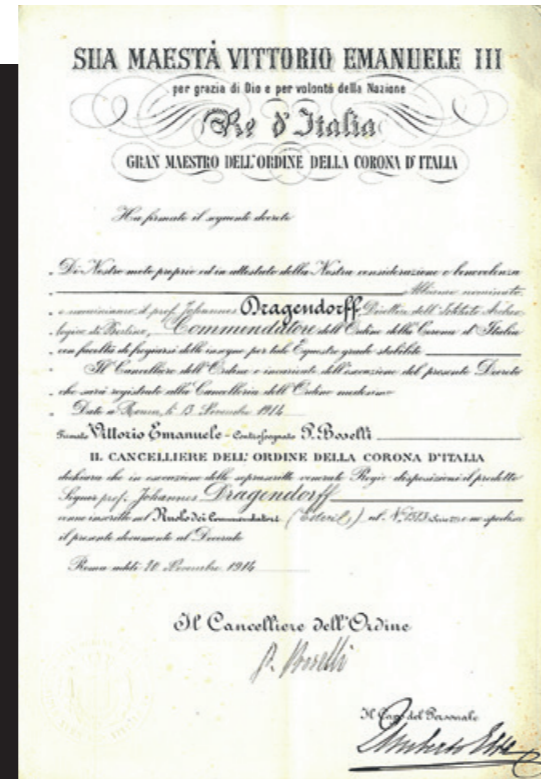 SUA MAESTÀ VITTORIO EMANUELE III
per grazia di Dio e per volontà della Nazione
Re d'Italia
GRAN MAESTRO DELL'ORDINE DELLA CORONA D'ITALIA
Ha firmato il seguente decreto
Di Nostro moto proprio ed in attestato della Nostra considerazione e benevolenza
Abbiamo nominato
e nominiamo il prof. Johannes Dragendorff Direttore dell'Istituto Archeo-
logico di Berlino, Commendatore dell'Ordine della Corona d'Italia
con facoltà di fregiarsi delle insegne per tale Equestre grado stabilite
Il Cancelliere dell'Ordine è incaricato dell'esecuzione del presente Decreto
che sarà registrato alla Cancelleria dell'Ordine medesimo
Dato a Roma, li 13 Novembre 1914
Firmato Vittorio Emanuele - Controsegnato P. Boselli
IL CANCELLIERE DELL' ORDINE DELLA CORONA D'ITALIA
dichiara che in esecuzione delle soprascritte Regie disposizioni il predetto
Signor prof. Johannes Dragendorff
venne inscritto nel Ruolo dei Commendatori al N.
il presente documento al Decorato
Roma addì 20 Novembre 1914
Il Cancelliere dell'Ordine
P. Boselli
Il Capo del Personale
Umberto